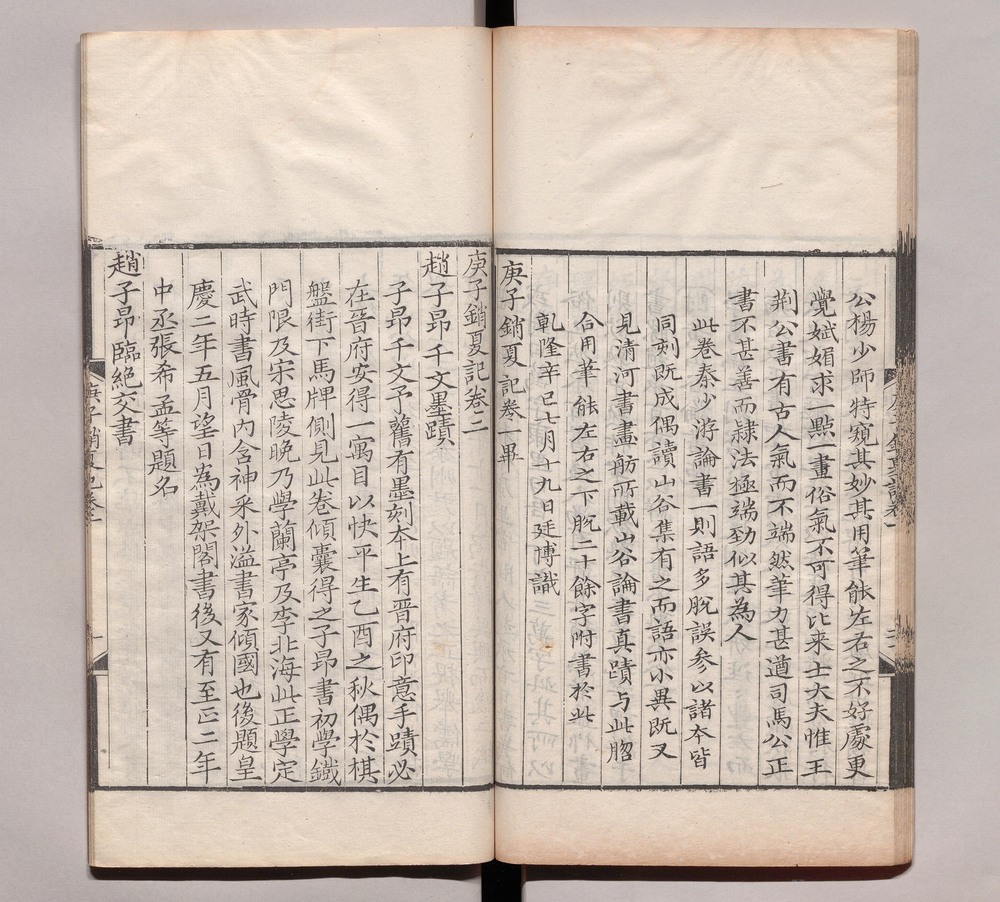 公楊少師特窺其妙其用筆能左右之不好處更
覺娬媚求一點一畫俗氣不可得比来士大夫惟王
荆公書有古人氣而不端然筆力甚遒司馬公正
書不甚善而隷法極端勁似其為人
此卷秦少游論書一則語多脫誤參以諸本皆
同刻既成偶讀山谷集有之而語亦小異既又
見清河書畫舫所載山谷論書真蹟与此脗
合用筆能左右之下脫二十餘字附書於此
乹隆辛巳七月十九日廷博識
庚子銷夏記卷一畢
庚子銷夏記卷二
趙子昂千文墨蹟
子昂千文予舊有墨刻本上有晋府印意手蹟必
在晉府安得一寓目以快平生乙酉之秋偶於棋
盤街下馬牌側見此卷傾囊得之子昂書初學鐵
門限及宋思陵晚乃學蘭亭及李北海此正學定
武時書風骨內含神采外溢書家傾國也後題皇
慶二年五月望日為戴架閣書後又有至正二年
中丞張希孟等題名
趙子昂臨絶交書